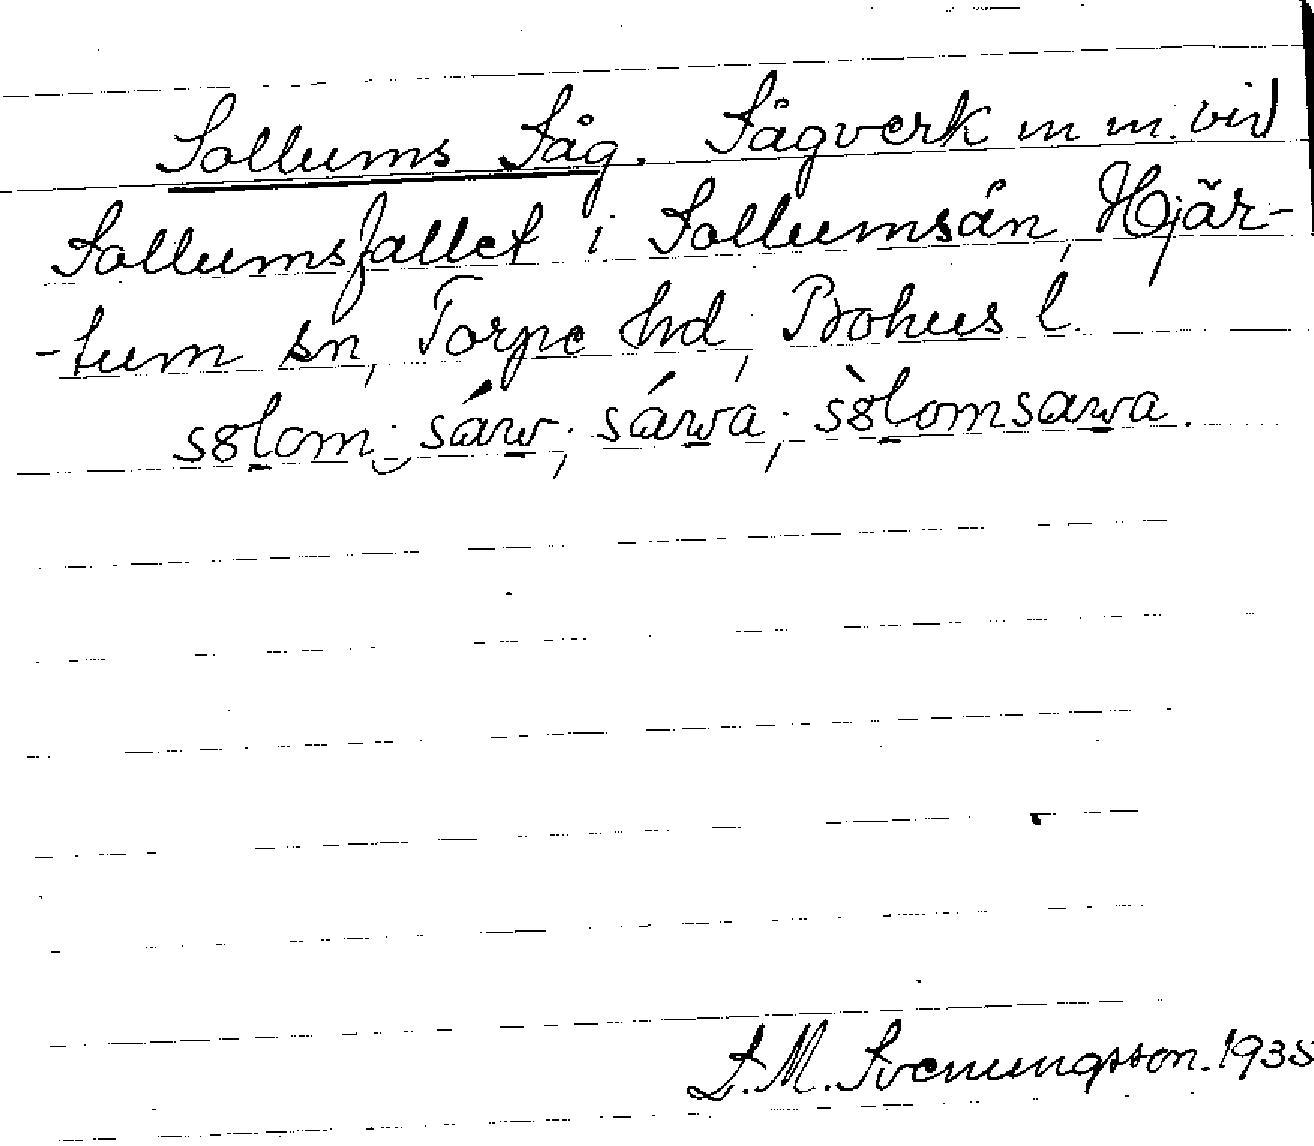 Sollums Såg. Sågverk m m. vid
Sollumsfallet i Sollumsån, Hjär-
-tum sn, Torpe hd, Bohus l.
s8lom; sáw; sáwa; s8̀lomsawa.
S. M. Svenungsson. 1935